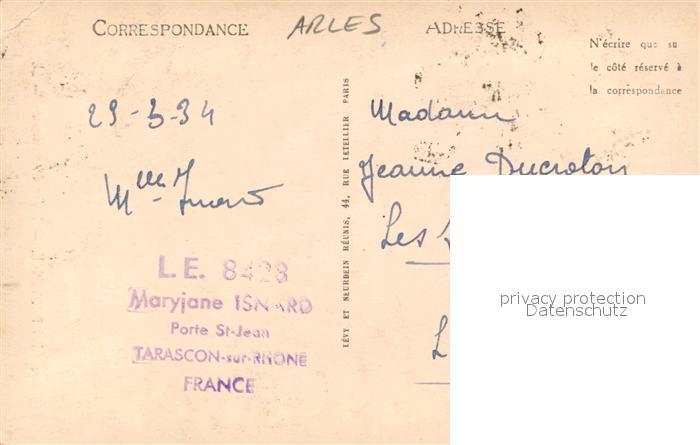 CORRESPONDANCE
ARLES
ADRESSE
N'écrire que su
le côté réservé à
la correspondance
29-3-34
Mlle Isnard
L.E. 8428
Maryjane ISNARD
Porte St-Jean
TARASCON-sur-RHONE
FRANCE
LÉVY ET NEURDEIN RÉUNIS, 44, RUE LETELLIER PARIS
Madame
Jeanne Ducroton
Les
L
privacy protection
Datenschutz